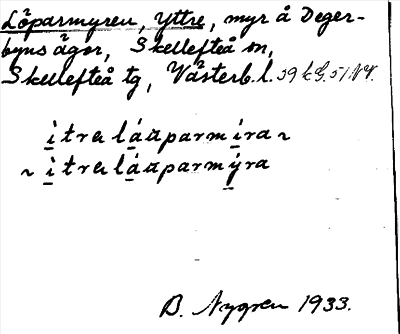 Löparmyren, Yttre, myr å Deger-
byns ägor, Skellefteå sn,
Skellefteå tg, Västerb. l. 39 k S. 51 NV.
itra láaparmira ~
~ itra láaparmýra
B. Nygren 1933.